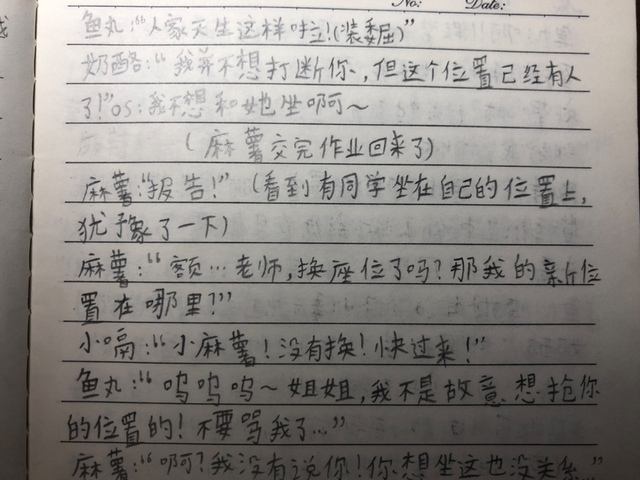 No: Date:
鱼丸:“人家天生这样啦!(装委屈)”
奶酪:“我并不想打断你,但这个位置已经有人
了!”OS:我不想和她坐啊~
(麻薯交完作业回来了)
麻薯:“报告!”(看到有同学坐在自己的位置上,
犹豫了一下)
麻薯:“额…老师,换座位了吗?那我的新位
置在哪里?”
小嗝:“小麻薯!没有换!快过来!”
鱼丸:“呜呜呜~姐姐,我不是故意想抢你
的位置的!不要骂我了…”
麻薯:“啊?我没有说你!你想坐这也没关系…”